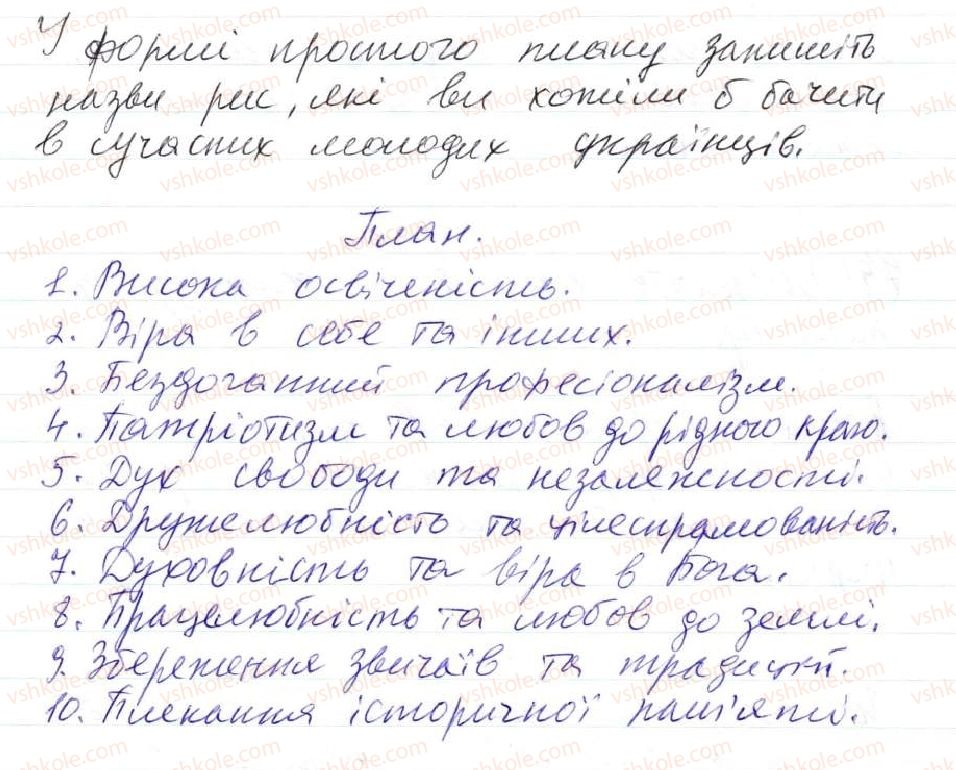 У формі простого плану запишіть
назви рис, які ви хотіли б бачити
в сучасних молодих українців.
План.
1. Висока освіченість.
2. Віра в себе та інших.
3. Бездоганний професіоналізм.
4. Патріотизм та любов до рідного краю.
5. Дух свободи та незалежності.
6. Дружелюбність та цілеспрямованість.
7. Духовність та віра в Бога.
8. Працелюбність та любов до землі.
9. Збереження звичаїв та традицій.
10. Плекання історичної пам'яті.